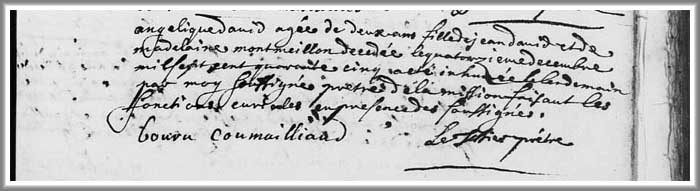 angelique david agée de deux ans fille de jean david et de
madelaine montmeillon decedée le quatorzieme decembre
mil sept cent quarante cinq a été inhumée le lendemain
par moy soussigné prêtre de la mission faisant les
fonctions curiales en presence des soussignes.
bouru coumailliaud
Le prêtre